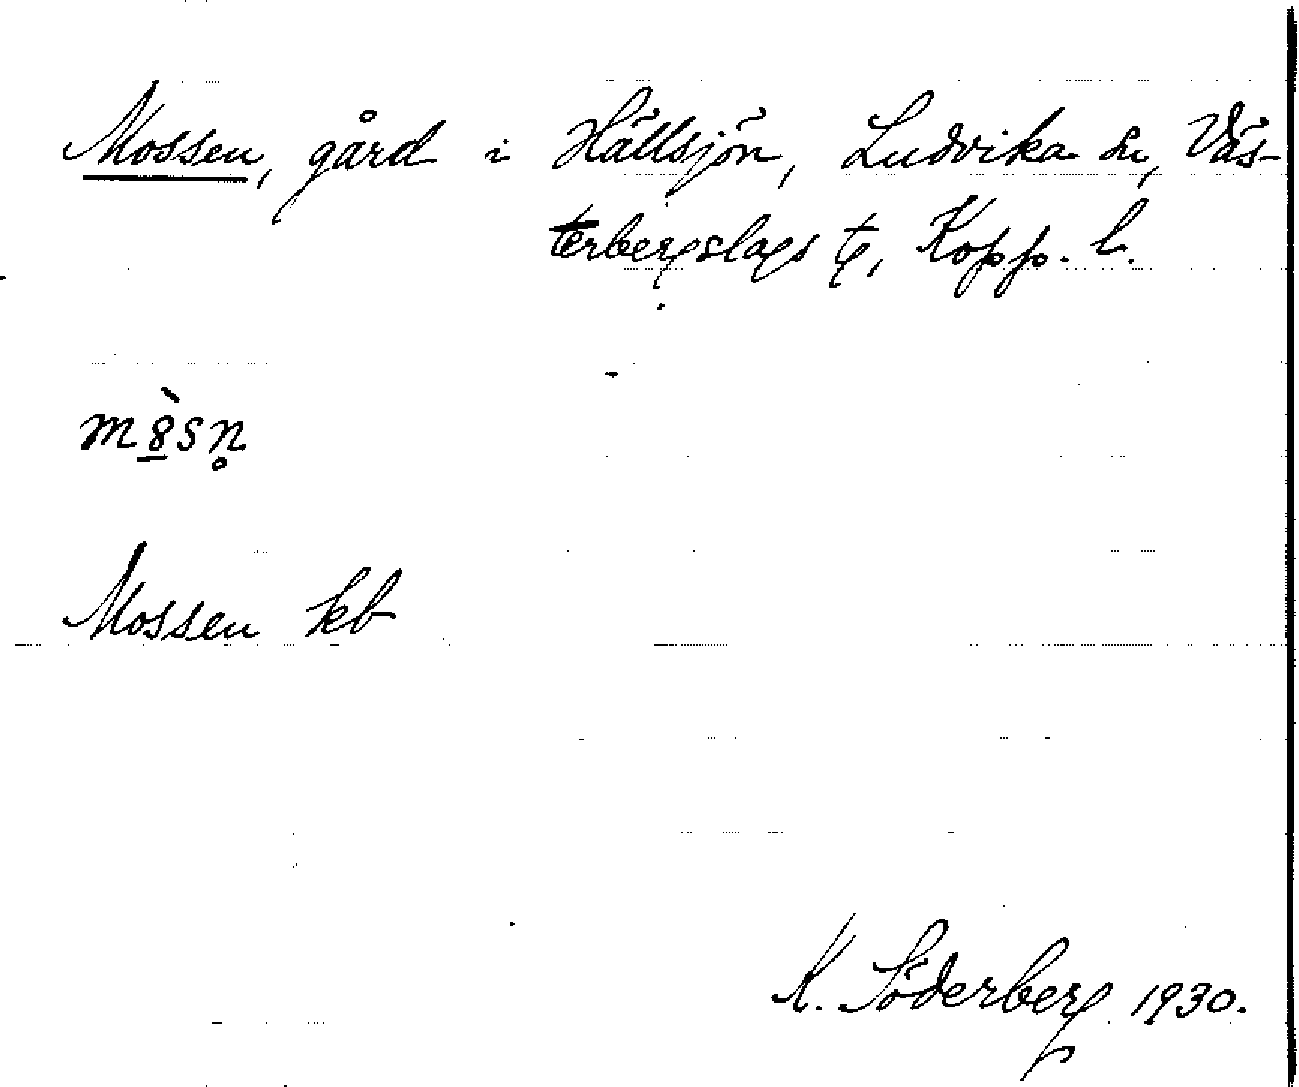 Mossen, gård i Hällsjön, Ludvika sn, Väs-
terbergslags tg, Kopp. l.
Mossen kb
K. Söderberg 1930.